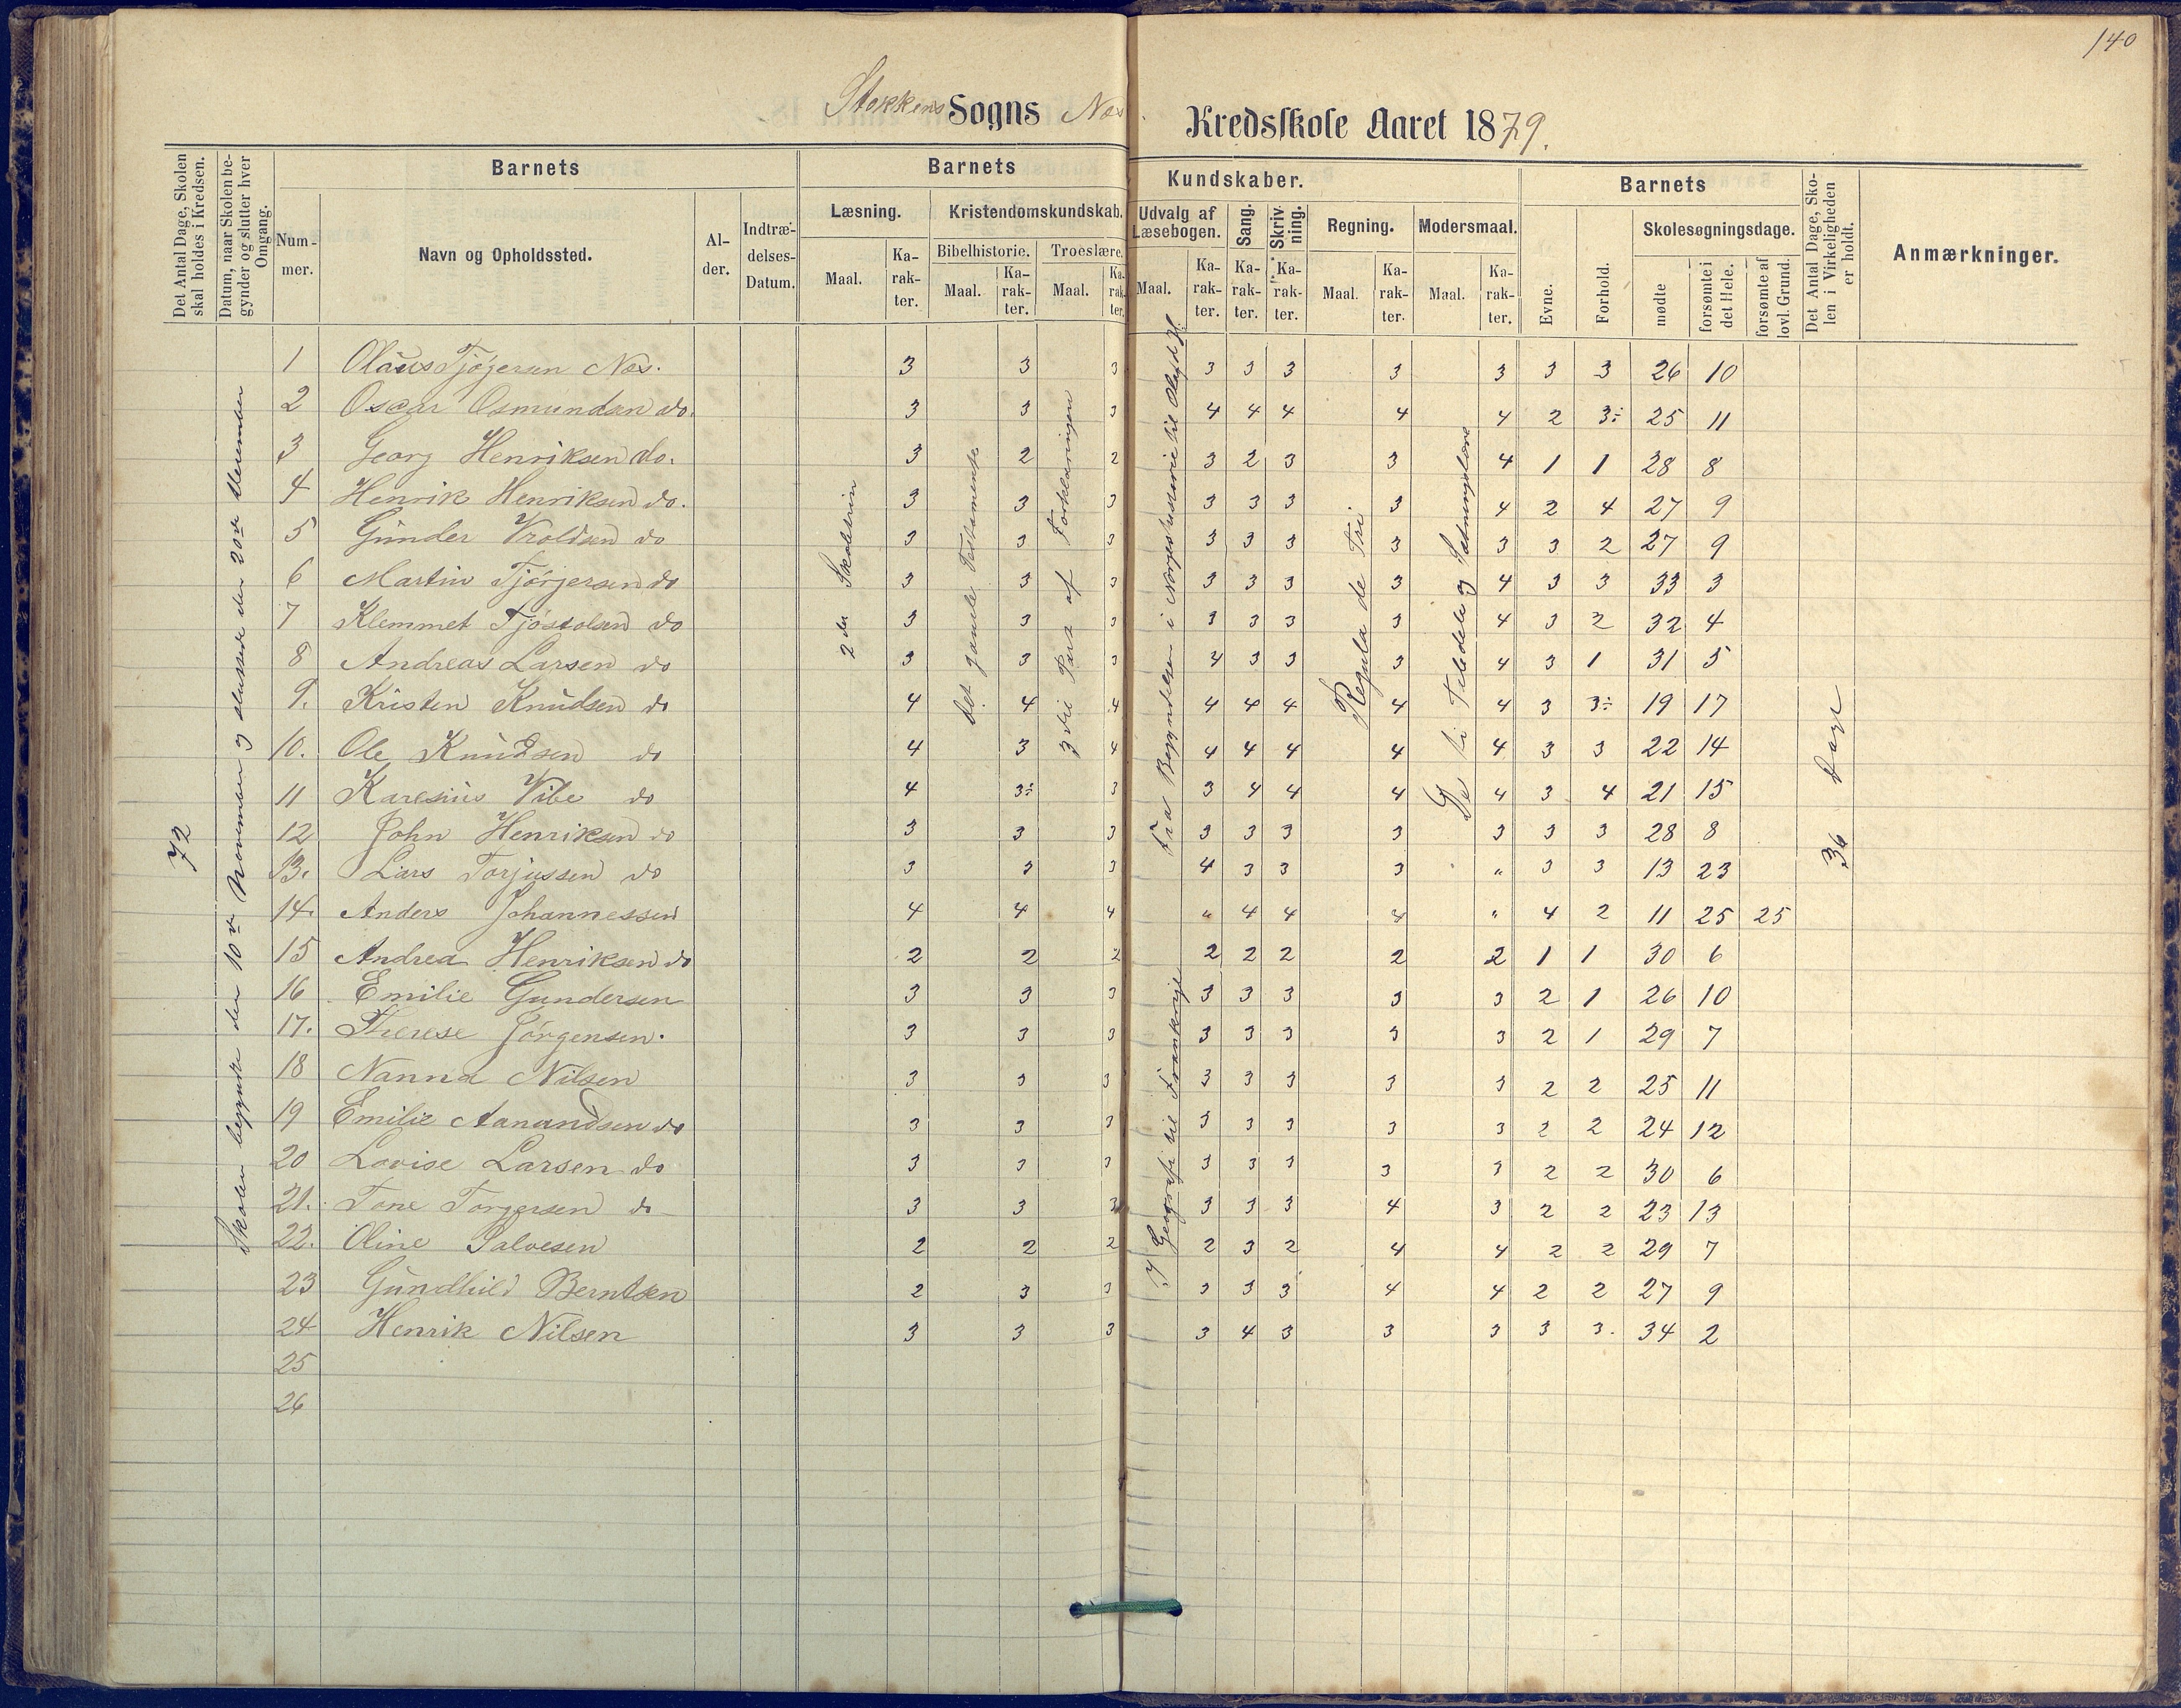 140
Stokkens Sogns Næs Kredsskole Aaret 1879.
Det Antal Dage, Skolen skal holdes i Kredsen.
Datum, naar Skolen begynder og slutter hver Omgang.
Barnets
Nummer.
Navn og Opholdssted.
Alder.
Indtrædelses-Datum.
Barnets Kundskaber.
Læsning.
Maal.
Karakter.
Kristendomskundskab.
Bibelhistorie.
Maal.
Karakter.
Troeslære.
Maal.
Karakter.
Udvalg af Læsebogen.
Maal.
Karakter.
Sang.
Karakter.
Skrivning.
Karakter.
Regning.
Maal.
Karakter.
Modersmaal.
Maal.
Karakter.
Barnets
Evne.
Forhold.
Skolesøgningsdage.
mødte
forsømte i det Hele.
forsømte af lovl. Grund.
Det Antal Dage, Skolen i Virkeligheden er holdt.
Anmærkninger.
72
Skolen begyndte den 10de November og sluttede den 20de December
2den Skoletrin
det gamle Testamente
3die Part af Forklaringen
Fra Begyndelsen i Norgeshistorie til Olaf d. Hl.
I Geografi til Frankrige
Regula de Tri
De ti Taledele og Sætningslære
36 Dage
1 Olaus Tjøgersen Næs. 3 3 3 3 3 3 3 3 3 3 26 10
2 Oscar Osmundsen do. 3 3 3 4 4 4 4 4 2 3÷ 25 11
3 Georg Henriksen do. 3 2 2 3 2 3 3 4 1 1 28 8
4 Henrik Henriksen do. 3 3 3 3 3 3 3 4 2 4 27 9
5 Gunder Vroldsen do 3 3 3 3 3 3 3 3 3 2 27 9
6 Martin Tjørjersen do 3 3 3 3 3 3 3 4 3 3 33 3
7 Klemmet Tjøstolsen do 3 3 3 3 3 3 3 4 3 2 32 4
8 Andreas Larsen do 3 3 3 4 3 3 3 4 3 1 31 5
9. Kristen Knudsen do 4 4 4 4 4 4 4 4 3 3÷ 19 17
10. Ole Knudsen do 4 3 4 4 4 4 4 4 3 3 22 14
11 Karesius Vibe do 4 3÷ 3 3 4 4 4 4 3 4 21 15
12 John Henriksen do 3 3 3 3 3 3 3 3 3 3 28 8
13. Lars Torjussen do 3 3 3 4 3 3 3 " 3 3 13 23
14. Anders Johannessen 4 4 4 " 4 4 4 " 4 2 11 25 25
15 Andrea Henriksen do 2 2 2 2 2 2 2 2 1 1 30 6
16 Emilie Gundersen 3 3 3 3 3 3 3 3 2 1 26 10
17. Therese Jörgensen. 3 3 3 3 3 3 3 3 2 1 29 7
18 Nanna Nilsen 3 3 3 3 3 3 3 3 2 2 25 11
19 Emilie Aanandsen do 3 3 3 3 3 3 3 3 2 2 24 12
20 Lovise Larsen do 3 3 3 3 3 3 3 3 2 2 30 6
21. Tone Torgersen do 3 3 3 3 3 3 4 3 2 2 23 13
22. Oline Salvesen 2 2 2 2 3 2 4 4 2 2 29 7
23 Gundhild Berntsen 2 3 3 3 3 3 4 4 2 2 27 9
24 Henrik Nilsen 3 3 3 3 4 3 3 3 3 3. 34 2
25
26